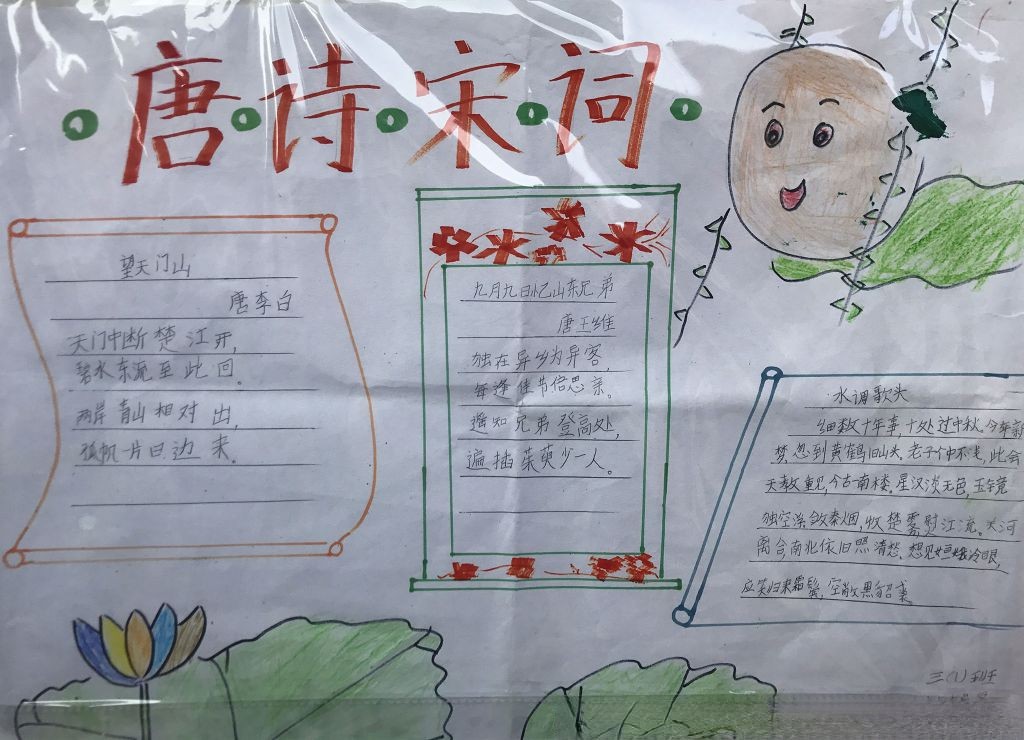 唐诗宋词
望天门山
唐李白
天门中断楚江开,
碧水东流至此回。
两岸青山相对出,
孤帆一片日边来。
九月九日忆山东兄弟
唐王维
独在异乡为异客,
每逢佳节倍思亲。
遥知兄弟登高处,
遍插茱萸少一人。
水调歌头
细数十年事,十处过中秋。今年新
梦,忽到黄鹤旧山头。老子个中不浅,此会
天教重见,今古南楼。星汉淡无色,玉镜
独空浮。敛秦烟,收楚雾,熨江流。关河
离合南北依旧照清愁。想见姮娥冷眼,
应笑归来霜鬓,空敝黑貂裘。
三(1)班